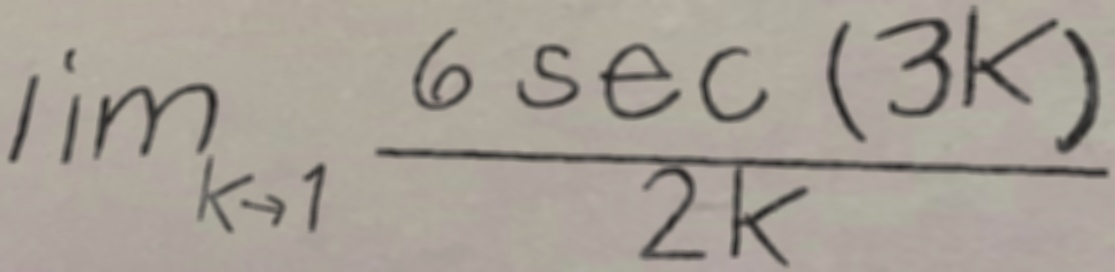 lim_{k→1} \frac{6 sec (3k)}{2k}